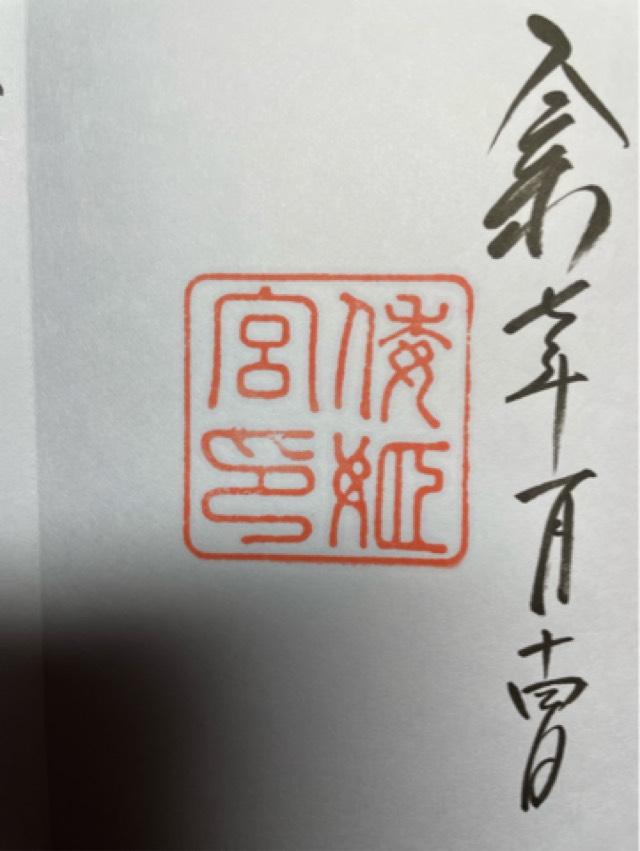 令和七年一月十四日
倭姫
宮印